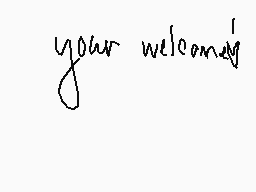 your welcome!